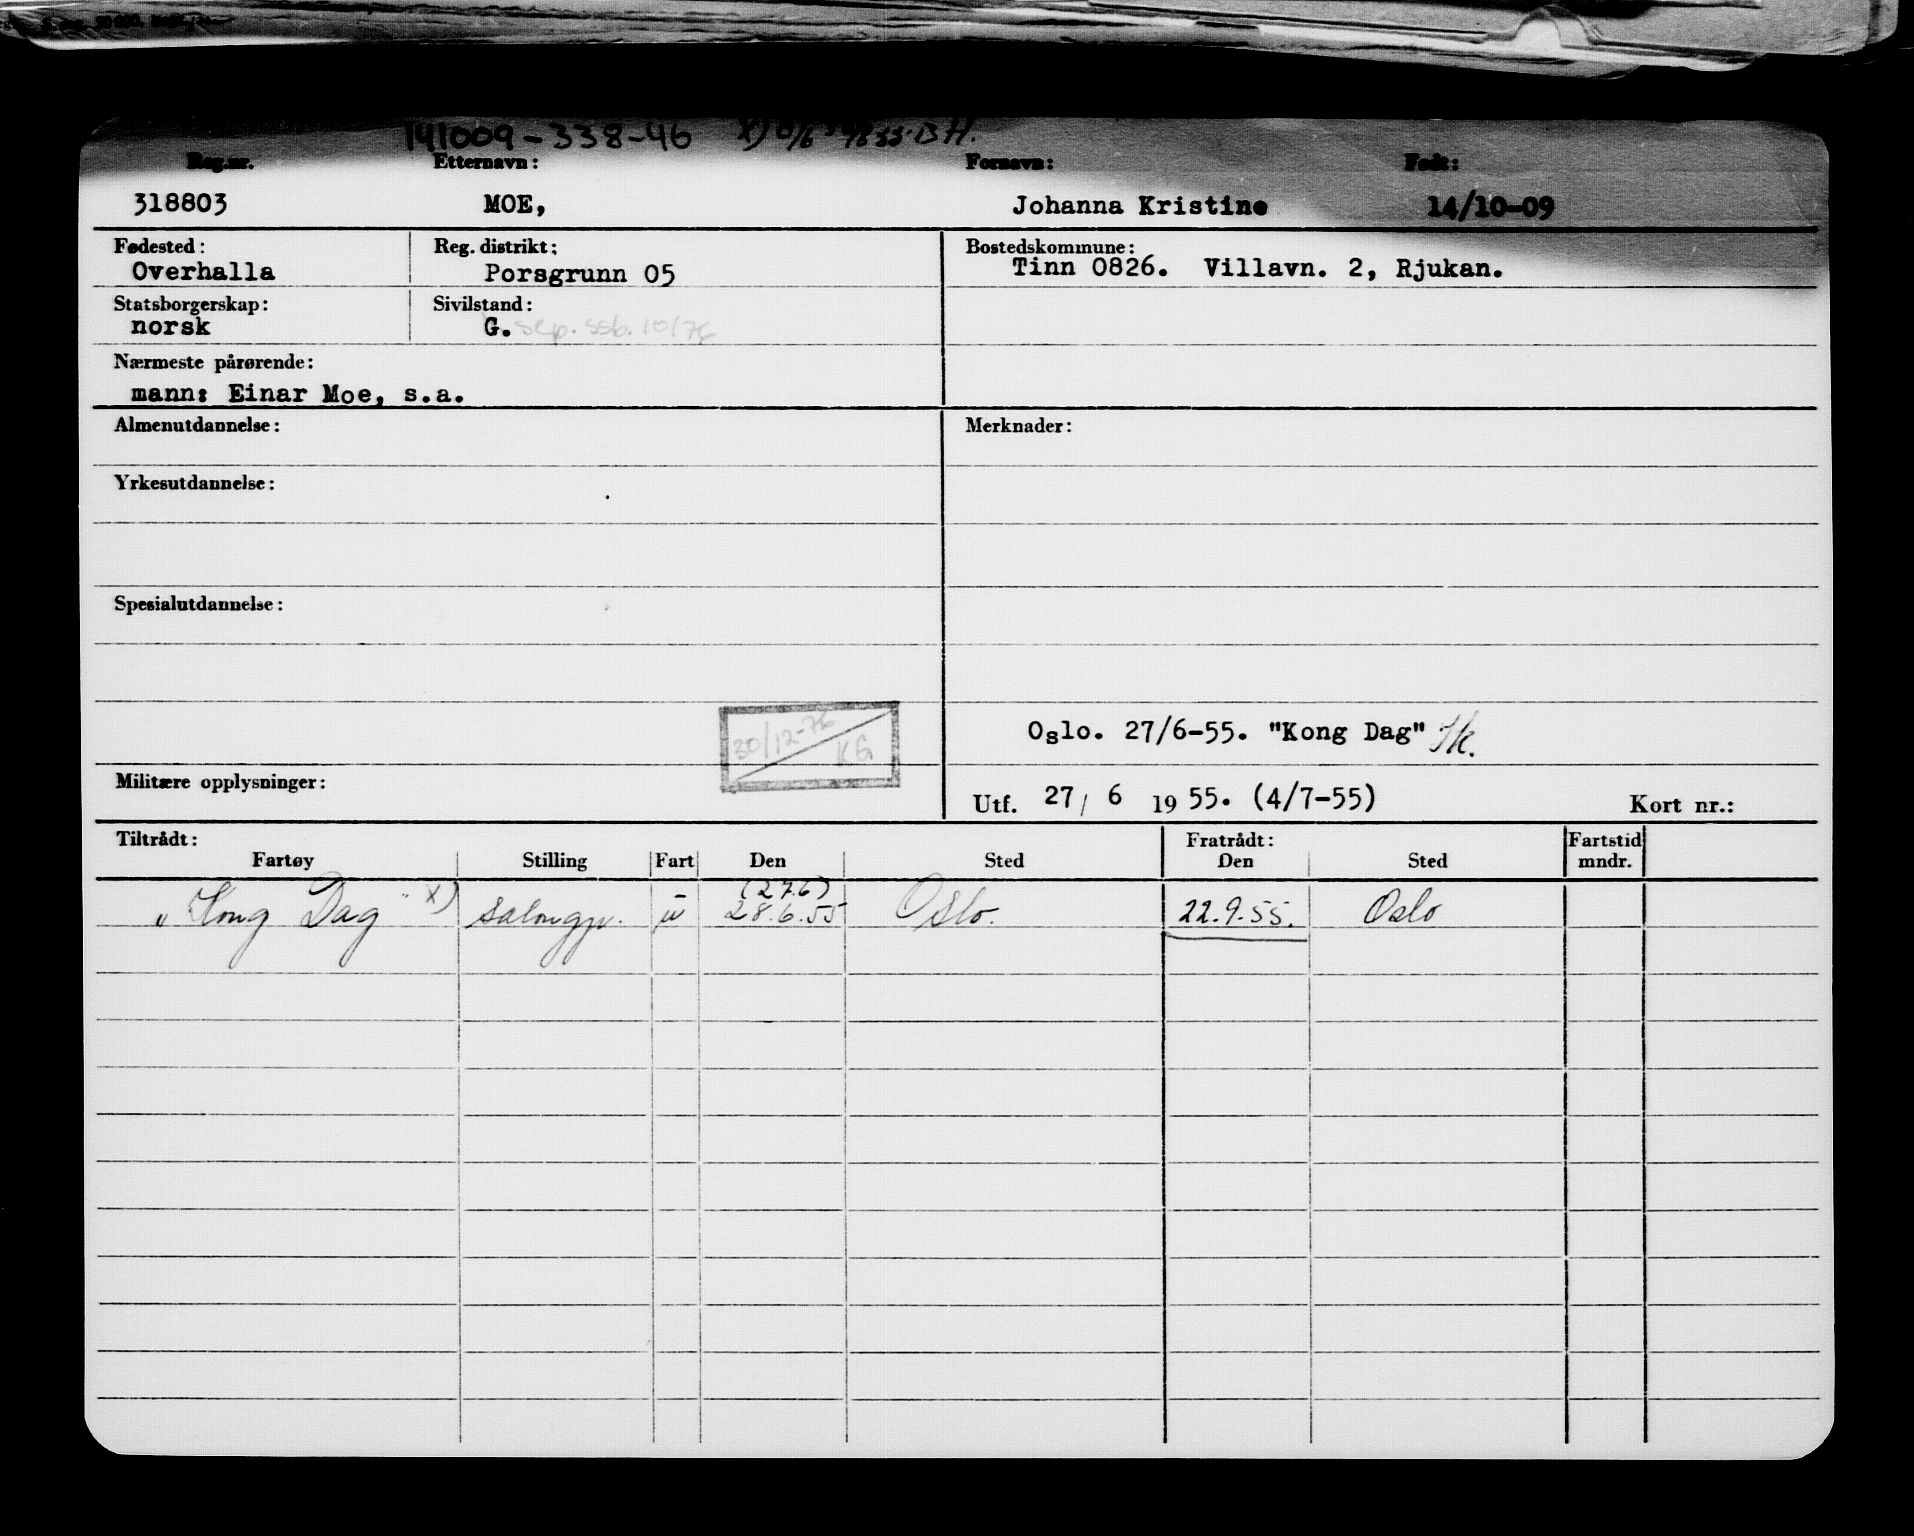 141009-338-46
Reg.nr. Etternavn: Fornavn: Født:
318803 MOE, Johanna Kristine 14/10-09
Fødested: Reg. distrikt: Bostedskommune:
Overhalla Porsgrunn 05 Tinn 0826. Villavn. 2, Rjukan.
Statsborgerskap: Sivilstand:
norsk G. sep. ssb. 10/76
Nærmeste pårørende:
mann: Einar Moe, s.a.
Almenutdannelse: Merknader:
Yrkesutdannelse:
Spesialutdannelse:
30/12-76
KG
Oslo. 27/6-55. "Kong Dag"
Militære opplysninger:
Utf. 27/ 6 1955. (4/7-55) Kort nr.:
Tiltrådt: Fratrådt: Fartstid
Fartøy Stilling Fart Den Sted Den Sted mndr.
(27.6)
"Kong Dag" x) salongp. u 28.6.55 Oslo. 22.9.55. Oslo